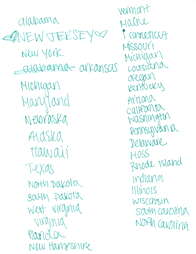 alabama
NEW JERSEY
new york
alabama arkansas
Michigan
Maryland
Nebraska
Alaska
Hawaii
Texas
north Dakota
south Dakota
west virginia
virginia
Florida
New Hampshire
vermont
Maine
connecticut
Missouri
Michigan
Louisiana
oregon
kentucky
Arizona
california
Washington
Pennsylvania
Delaware
Mass
Rhode Island
Indiana
Illinois
wisconsin
south carolina
North carolina